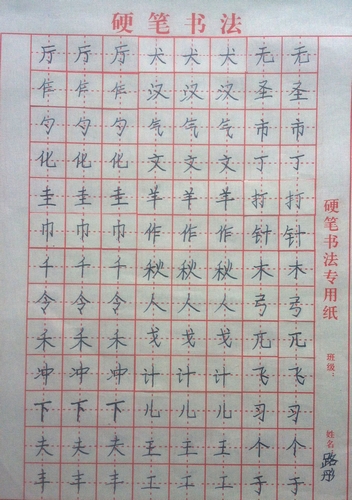 硬笔书法
厅厅厅犬犬犬无无
作作作汉汉汉圣圣
匀匀匀气气气市市
化化化文文文丁丁
圭圭圭羊羊羊打打
巾巾巾作作作针针
千千千秋秋秋木木
令令令人人人弓弓
禾禾禾戈戈戈兀兀
冲冲冲计计计飞飞
下下下儿儿儿习习
夫夫夫王王王个个
丰丰丰工工工于于
硬笔书法专用纸
班级：
姓名 路丹